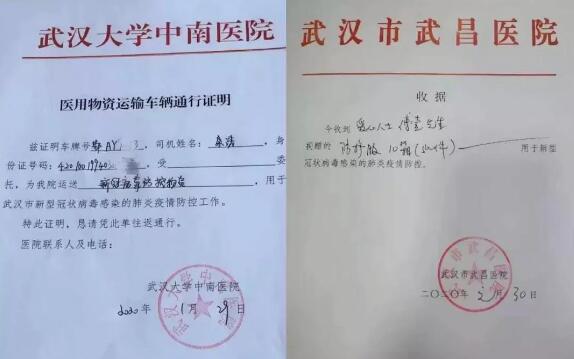 武汉大学中南医院
医用物资运输车辆通行证明
兹证明车牌号鄂AY 司机姓名: 身
份证号码: 420 受 委
托,为我院运送 新冠 防控物资 ,用于
武汉市新型冠状病毒感染的肺炎疫情防控工作。
特此证明,恳请凭此单往返通行。
医院联系人及电话:
武汉大学中南医院
2020年1月29日
武汉大学中南医院
武汉市武昌医院
收据
今收到 爱心人士 傅 先生
捐赠的 防护服 10箱 用于新型
冠状病毒感染的肺炎疫情防控。
武汉市武昌医院
二〇二〇年 月30日
武汉市武昌医院